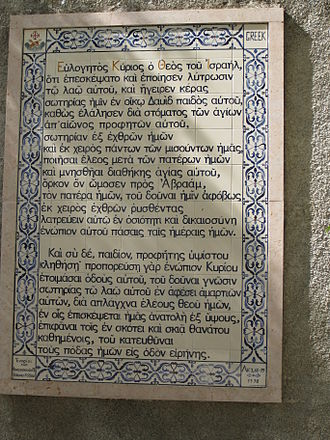 GREEK
Εὐλογητὸς Κύριος ὁ Θεὸς τοῦ Ἰσραήλ,
ὅτι ἐπεσκέψατο καὶ ἐποίησεν λύτρωσιν
τῷ λαῷ αὐτοῦ, καὶ ἤγειρεν κέρας
σωτηρίας ἡμῖν ἐν οἴκῳ Δαυὶδ παιδὸς αὐτοῦ,
καθὼς ἐλάλησεν διὰ στόματος τῶν ἁγίων
ἀπ᾽αἰῶνος προφητῶν αὐτοῦ,
σωτηρίαν ἐξ ἐχθρῶν ἡμῶν
καὶ ἐκ χειρὸς πάντων τῶν μισούντων ἡμᾶς,
ποιῆσαι ἔλεος μετὰ τῶν πατέρων ἡμῶν
καὶ μνησθῆναι διαθήκης ἁγίας αὐτοῦ,
ὅρκον ὃν ὤμοσεν πρὸς Ἀβραάμ,
τὸν πατέρα ἡμῶν, τοῦ δοῦναι ἡμῖν ἀφόβως,
ἐκ χειρὸς ἐχθρῶν ῥυσθέντας
λατρεύειν αὐτῷ ἐν ὁσιότητι καὶ δικαιοσύνῃ
ἐνώπιον αὐτοῦ πάσαις ταῖς ἡμέραις ἡμῶν.
Καὶ σὺ δέ, παιδίον, προφήτης ὑψίστου
κληθήσῃ· προπορεύσῃ γὰρ ἐνώπιον Κυρίου
ἑτοιμάσαι ὁδοὺς αὐτοῦ, τοῦ δοῦναι γνῶσιν
σωτηρίας τῷ λαῷ αὐτοῦ ἐν ἀφέσει ἁμαρτιῶν
αὐτῶν, διὰ σπλάγχνα ἐλέους θεοῦ ἡμῶν,
ἐν οἷς ἐπισκέψεται ἡμᾶς ἀνατολὴ ἐξ ὕψους,
ἐπιφᾶναι τοῖς ἐν σκότει καὶ σκιᾷ θανάτου
καθημένοις, τοῦ κατευθῦναι
τοὺς πόδας ἡμῶν εἰς ὁδὸν εἰρήνης.